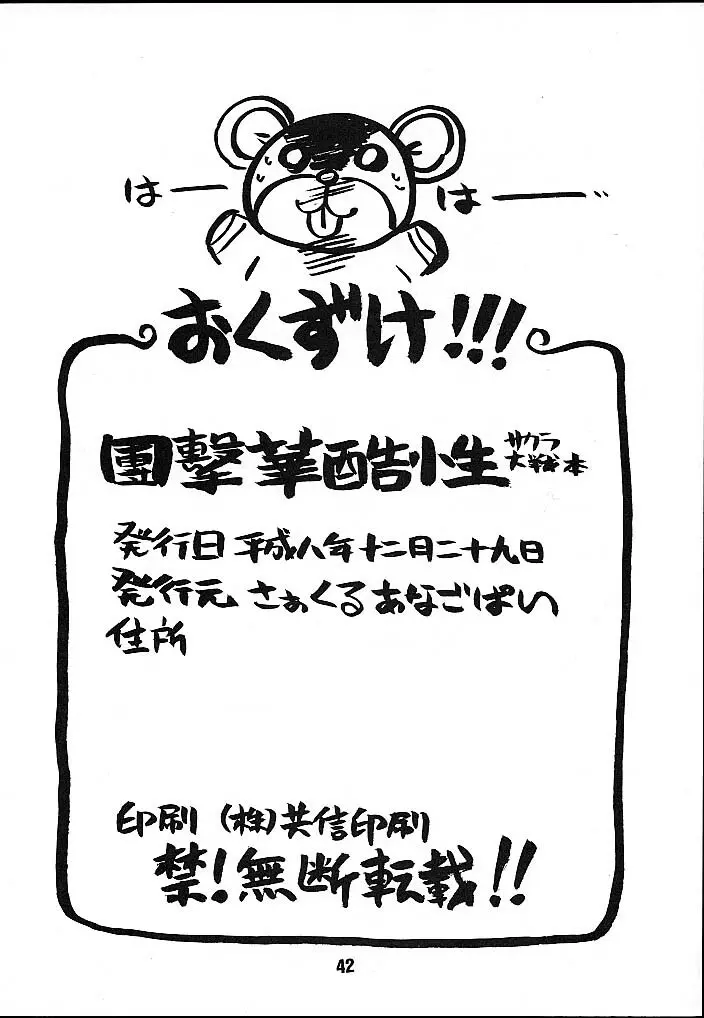 はー
はー
おくずけ!!!
團撃華酷小生 サクラ大戦本
発行日 平成八年十二月二十九日
発行元 さぁくるあなごぱい
住所
印刷 (株)共信印刷
禁!無断転載!!
42